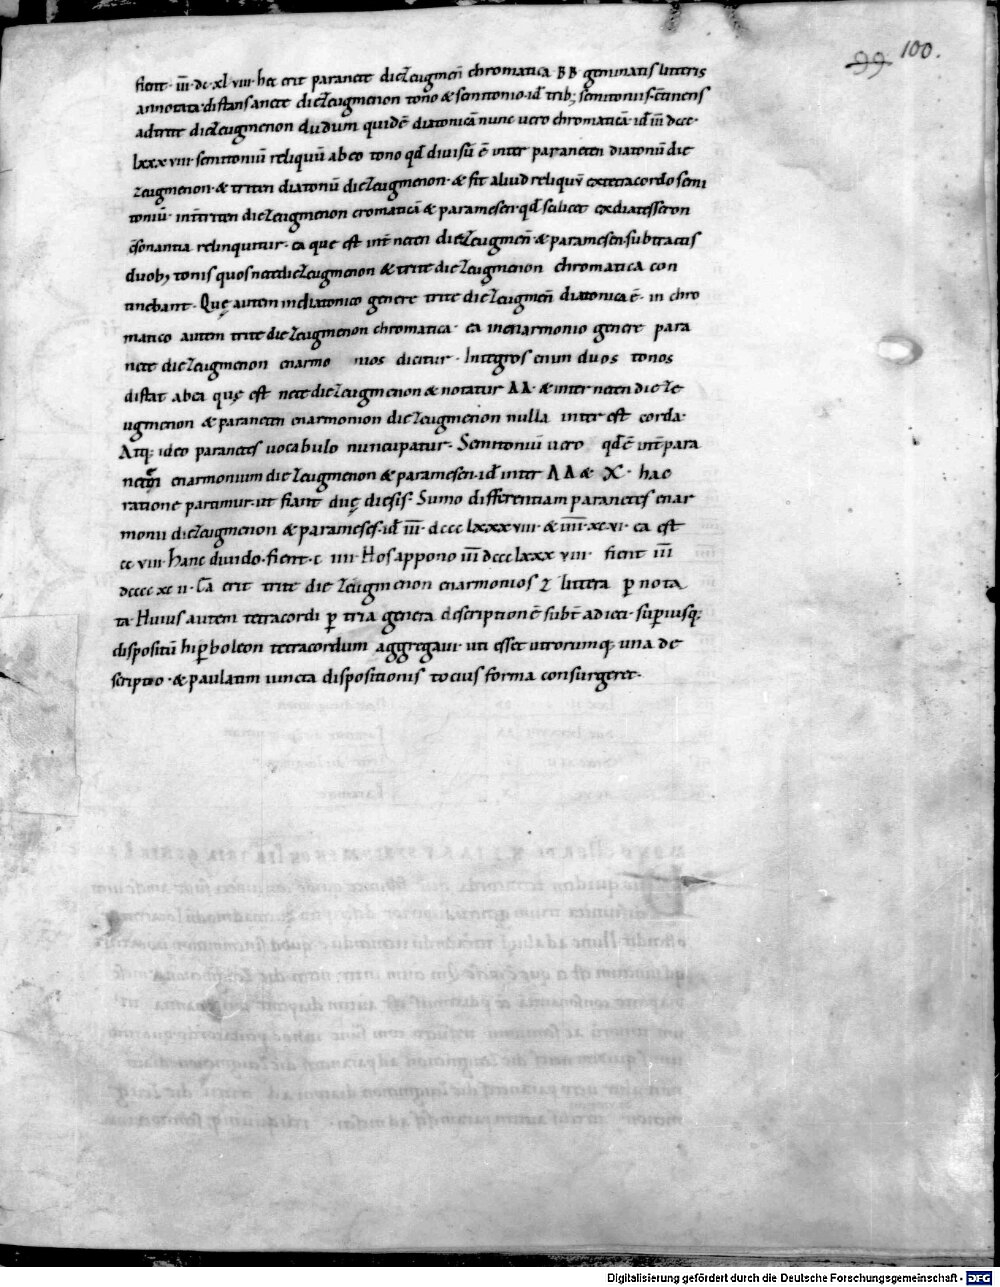 99 100.
fient· iii· dc xl viii· hec erit paranete diezeugmen̄ chromatica BB geminatis litteris
annotata· distans a nete diezeugmenon tono & semitonio· id tribꝫ semitoniis· c̄tinens
ad trite diezeugmenon dudum quidē diatonicā nunc uero chromaticā· id iii dccc·
lxxx viii· semitoniū reliquū ab eo tono qđ diuisū ē inter paraneten diatonū die
zeugmenon· & triten diatonū diezeugmenon· & fit aliud reliquū ex tetracordo semi
toniū· int̄ triten diezeugmenon cromaticā & paramesen· qđ scilicet ex diatesseron
c̄sonantia relinquitur· ea que est int̄ neten diezeugmen̄ & paramesen· subtractis
duobꝫ tonis quos nete diezeugmenon & trite diezeugmenon chromatica con
tinebant· Quę autem in diatonico genere trite diezeugmen̄ diatonica ē· in chro
matico autem trite diezeugmenon chromatica· ea in enarmonio genere para
nete diezeugmenon enarmo nios dicitur· Integros enim duos tonos
distat ab ea quę est nete diezeugmenon & notatur ΛΛ· & inter neten dieze
ugmenon & paraneten enarmonion diezeugmenon nulla inter est corda·
Atqꝫ ideo paranetes uocabulo nuncupatur· Semitoniū uero qđ ē int̄ para
neten enarmonium diezeugmenon & paramesen· id inter ΛΛ & X· hac
ratione partimur· ut fiant duę diesis· Sumo differentiam paranetes enar
monii diezeugmenon & parameses· id iii· dccc lxxxviii· & iiii· xc vi· ea est
cc viii· hanc diuido· fient· c iiii· Hos appono iii dccc lxxx viii· fient iii
dcccc xc ii· Ea erit trite diezeugmenon enarmonios Z littera p̄ nota
ta· Huius autem tetracordi p̄ tria genera descriptionē subt̄ adieci· sup̄iusqꝫ
dispositū hip̄boleon tetracordum aggregaui· uti esset utrorumqꝫ una de
scriptio· & paulatim iuncta dispositionis tocius forma consurgeret·
Digitalisierung gefördert durch die Deutsche Forschungsgemeinschaft - DFG